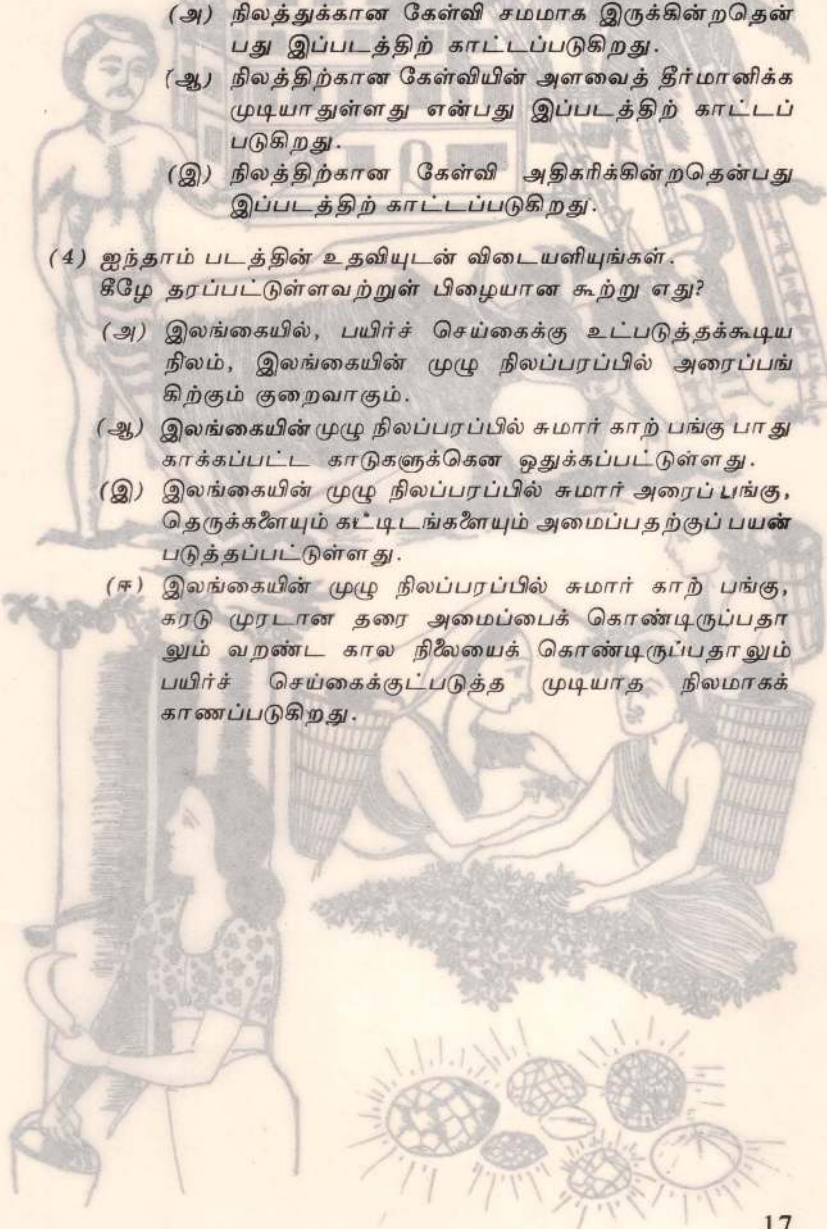 (அ) நிலத்துக்கான கேள்வி சமமாக இருக்கின்றதென்
பது இப்படத்திற் காட்டப்படுகிறது.
(ஆ) நிலத்திற்கான கேள்வியின் அளவைத் தீர்மானிக்க
முடியாதுள்ளது என்பது இப்படத்திற் காட்டப்
படுகிறது.
(இ) நிலத்திற்கான கேள்வி அதிகரிக்கின்றதென்பது
இப்படத்திற் காட்டப்படுகிறது.
(4) ஐந்தாம் படத்தின் உதவியுடன் விடையளியுங்கள்.
கீழே தரப்பட்டுள்ளவற்றுள் பிழையான கூற்று எது?
(அ) இலங்கையில், பயிர்ச் செய்கைக்கு உட்படுத்தக்கூடிய
நிலம், இலங்கையின் முழு நிலப்பரப்பில் அரைப்பங்
கிற்கும் குறைவாகும்.
(ஆ) இலங்கையின் முழு நிலப்பரப்பில் சுமார் காற் பங்கு பாது
காக்கப்பட்ட காடுகளுக்கென ஒதுக்கப்பட்டுள்ளது.
(இ) இலங்கையின் முழு நிலப்பரப்பில் சுமார் அரைப் பங்கு,
தெருக்களையும் கட்டிடங்களையும் அமைப்பதற்குப் பயன்
படுத்தப்பட்டுள்ளது.
(ஈ) இலங்கையின் முழு நிலப்பரப்பில் சுமார் காற் பங்கு,
கரடு முரடான தரை அமைப்பைக் கொண்டிருப்பதா
லும் வறண்ட கால நிலையைக் கொண்டிருப்பதாலும்
பயிர்ச் செய்கைக்குட்படுத்த முடியாத நிலமாகக்
காணப்படுகிறது.
17